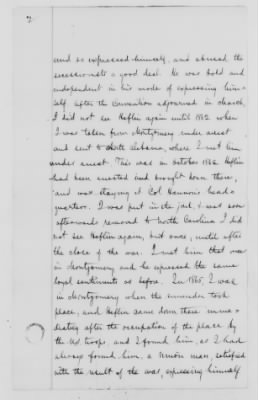 2
and so expressed himself, and abused the
secessionists a good deal. He was bold and
independent in his mode of expressing him-
self. After the Convention adjourned in March,
I did not see Heflin again until 1862 when
I was taken from Montgomery under arrest
and sent to North Alabama, where I met him
under arrest. This was in October 1862. Heflin
had been arrested and brought down there,
and was staying at Col Hannon's head-
quarters. I was put in the jail. I was soon
afterwards removed to North Carolina. I did
not see Heflin again, but once, until after
the close of the war. I met him that once
in Montgomery and he expressed the same
loyal sentiments as before. In 1865, I was
in Montgomery when the surrender took
place, and Heflin came down there imme-
diately after the occupation of the place by
the U.S. troops, and I found him, as I had
always found him, a Union man, satisfied
with the result of the war, expressing himself